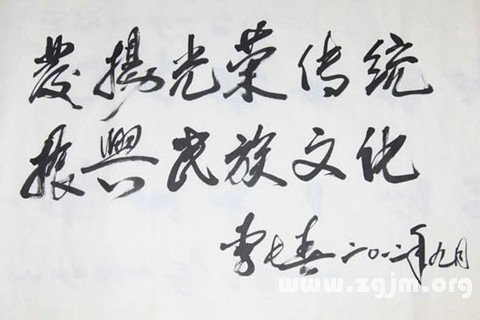 發揚光荣传统
振興民族文化
李七喜 二〇一二年九月
www.zgjm.org